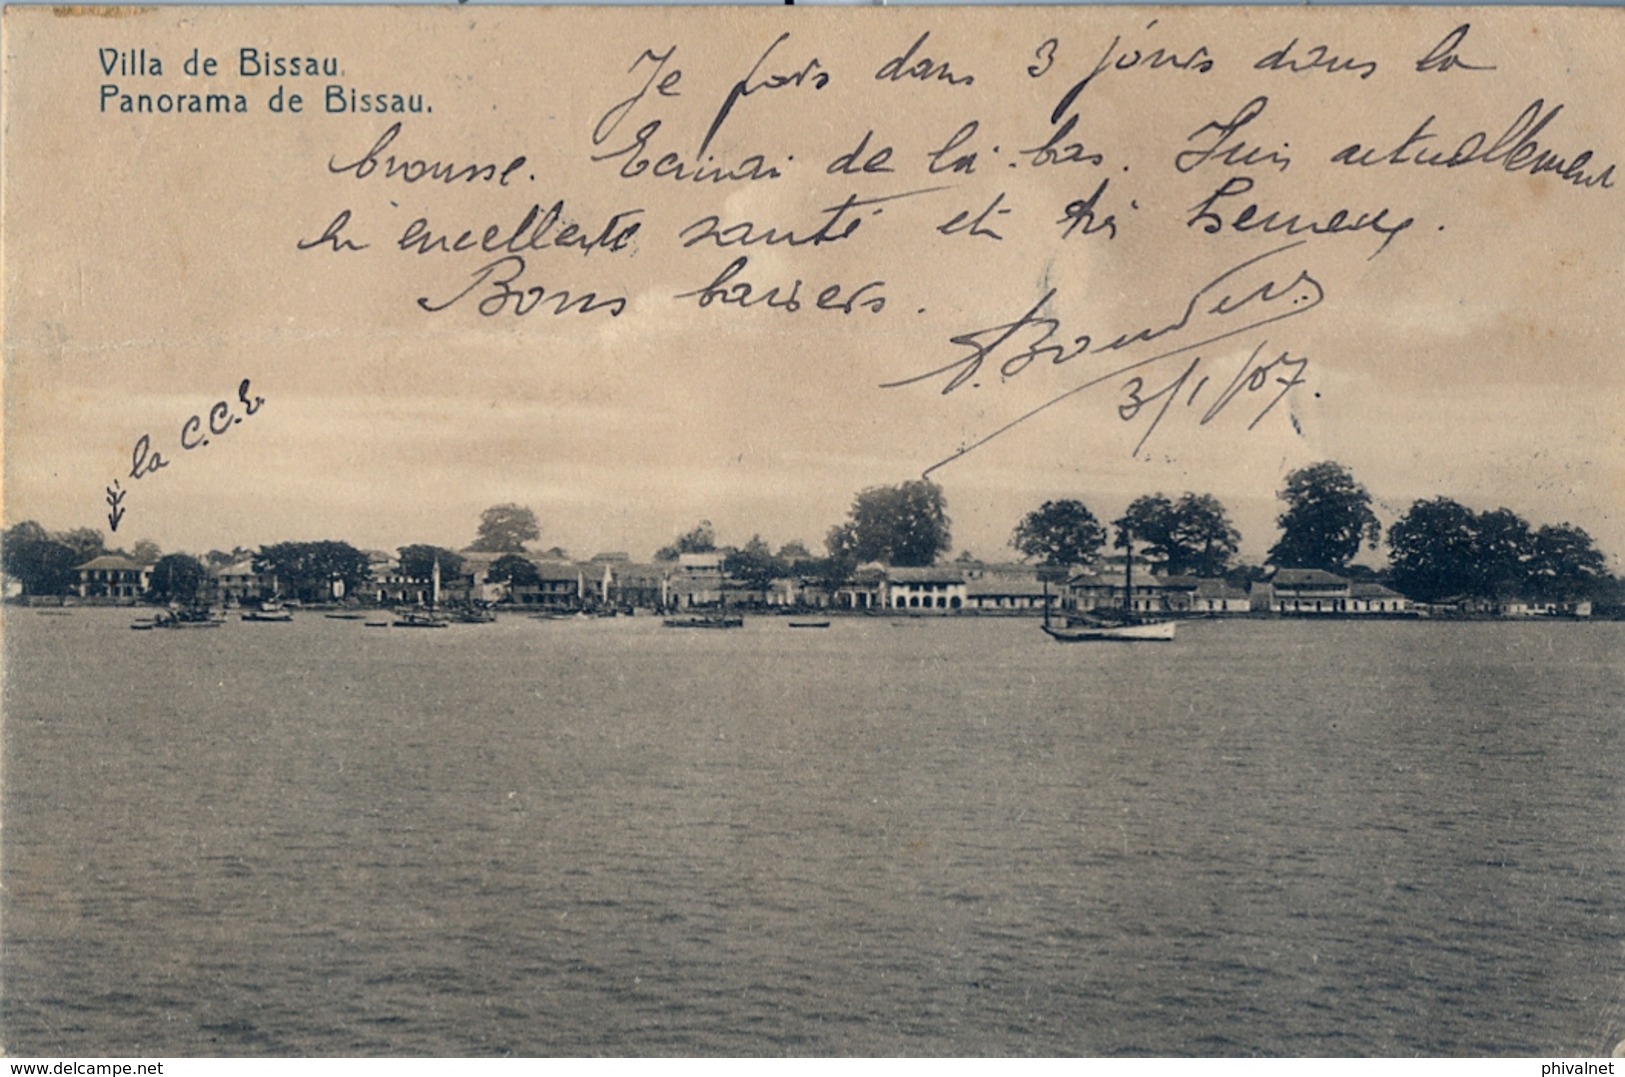 Villa de Bissau.
Panorama de Bissau.
Je pars dans 3 jours dans la
brousse. Ecrirai de là-bas. Suis actuellement
en excellente santé et très heureux.
Bons baisers.
3/1/07.
la C.C.E
delcampe.net
phivalnet